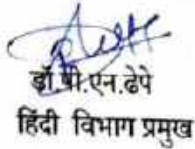 डॉ.पी.एन.ढेपे
हिंदी विभाग प्रमुख